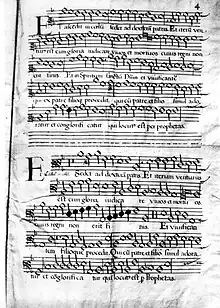 4
scedit in celū sedet ad dextera patris Et iterū ven
est cum gloria iudicare viuos et mortuos cuius regni non
erit finis Et in Spiritum sanctū Dñm et viuificante
qui ex patre filioq procedit qui cū patre et filio simul ado
ratur et conglorifi catur qui locut est per prophetas
Sedet ad dexterā patris Et iterum venturus
est cum gloria iudica re viuos et mortu os
cuius regni non erit fi nis Et viuifican
tem filioque procedit Qui cū patre et filio simul adora
tur et cōglorifica tur qui locut est p prophetas